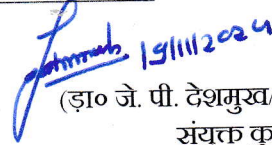 19/11/2024
(ड़ा० जे. पी. देशमुख/
संयुक्त कृ